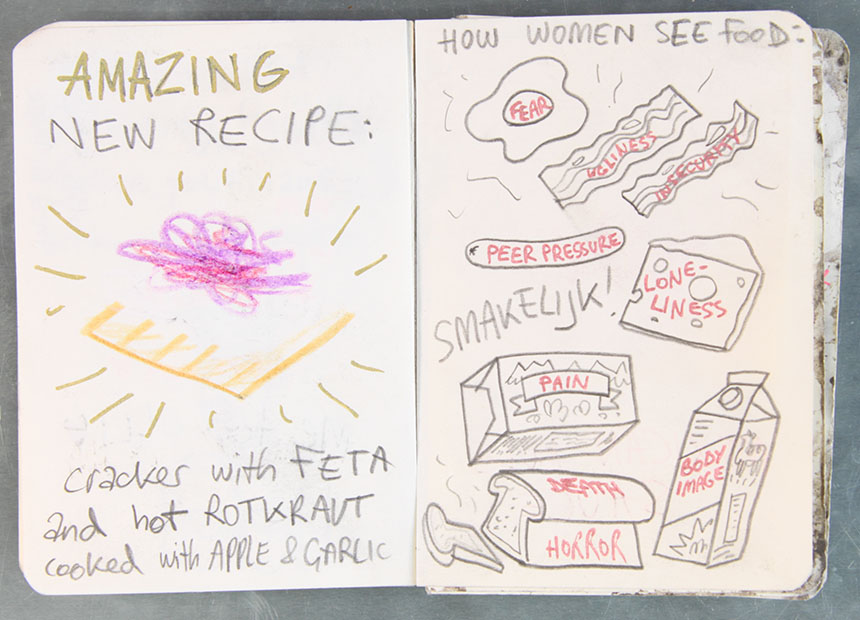 AMAZING
NEW RECIPE:
cracker with FETA
and hot ROTKRAUT
cooked with APPLE & GARLIC
HOW WOMEN SEE FOOD:
FEAR
UGLINESS
INSECURITY
PEER PRESSURE
LONE-
LINESS
SMAKELIJK!
PAIN
BODY
IMAGE
DEATH
HORROR